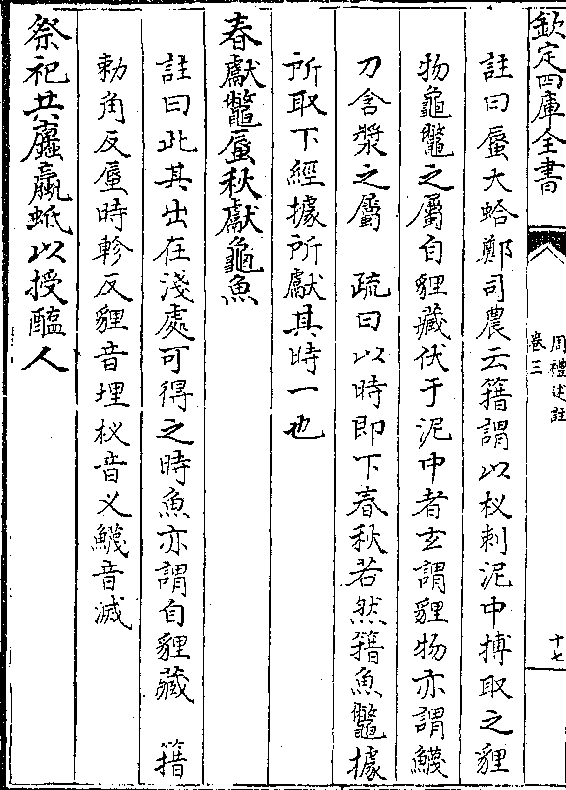 欽定四庫全書
周禮述註
卷三
十七
註曰蜃大蛤鄭司農云籍謂以杈刺泥中搏取之貍
物龜鼈之屬自貍藏伏于泥中者玄謂貍物亦謂鱴
刀含漿之屬　疏曰以時即下春秋若然籍魚鼈據
所取下經據所獻其時一也
春獻鼈蜃秋獻龜魚
註曰此其出在淺處可得之時魚亦謂自貍藏　籍
勑角反蜃時軫反貍音埋杈音乂鱴音滅
祭祀共蠯蠃蚳以授醢人